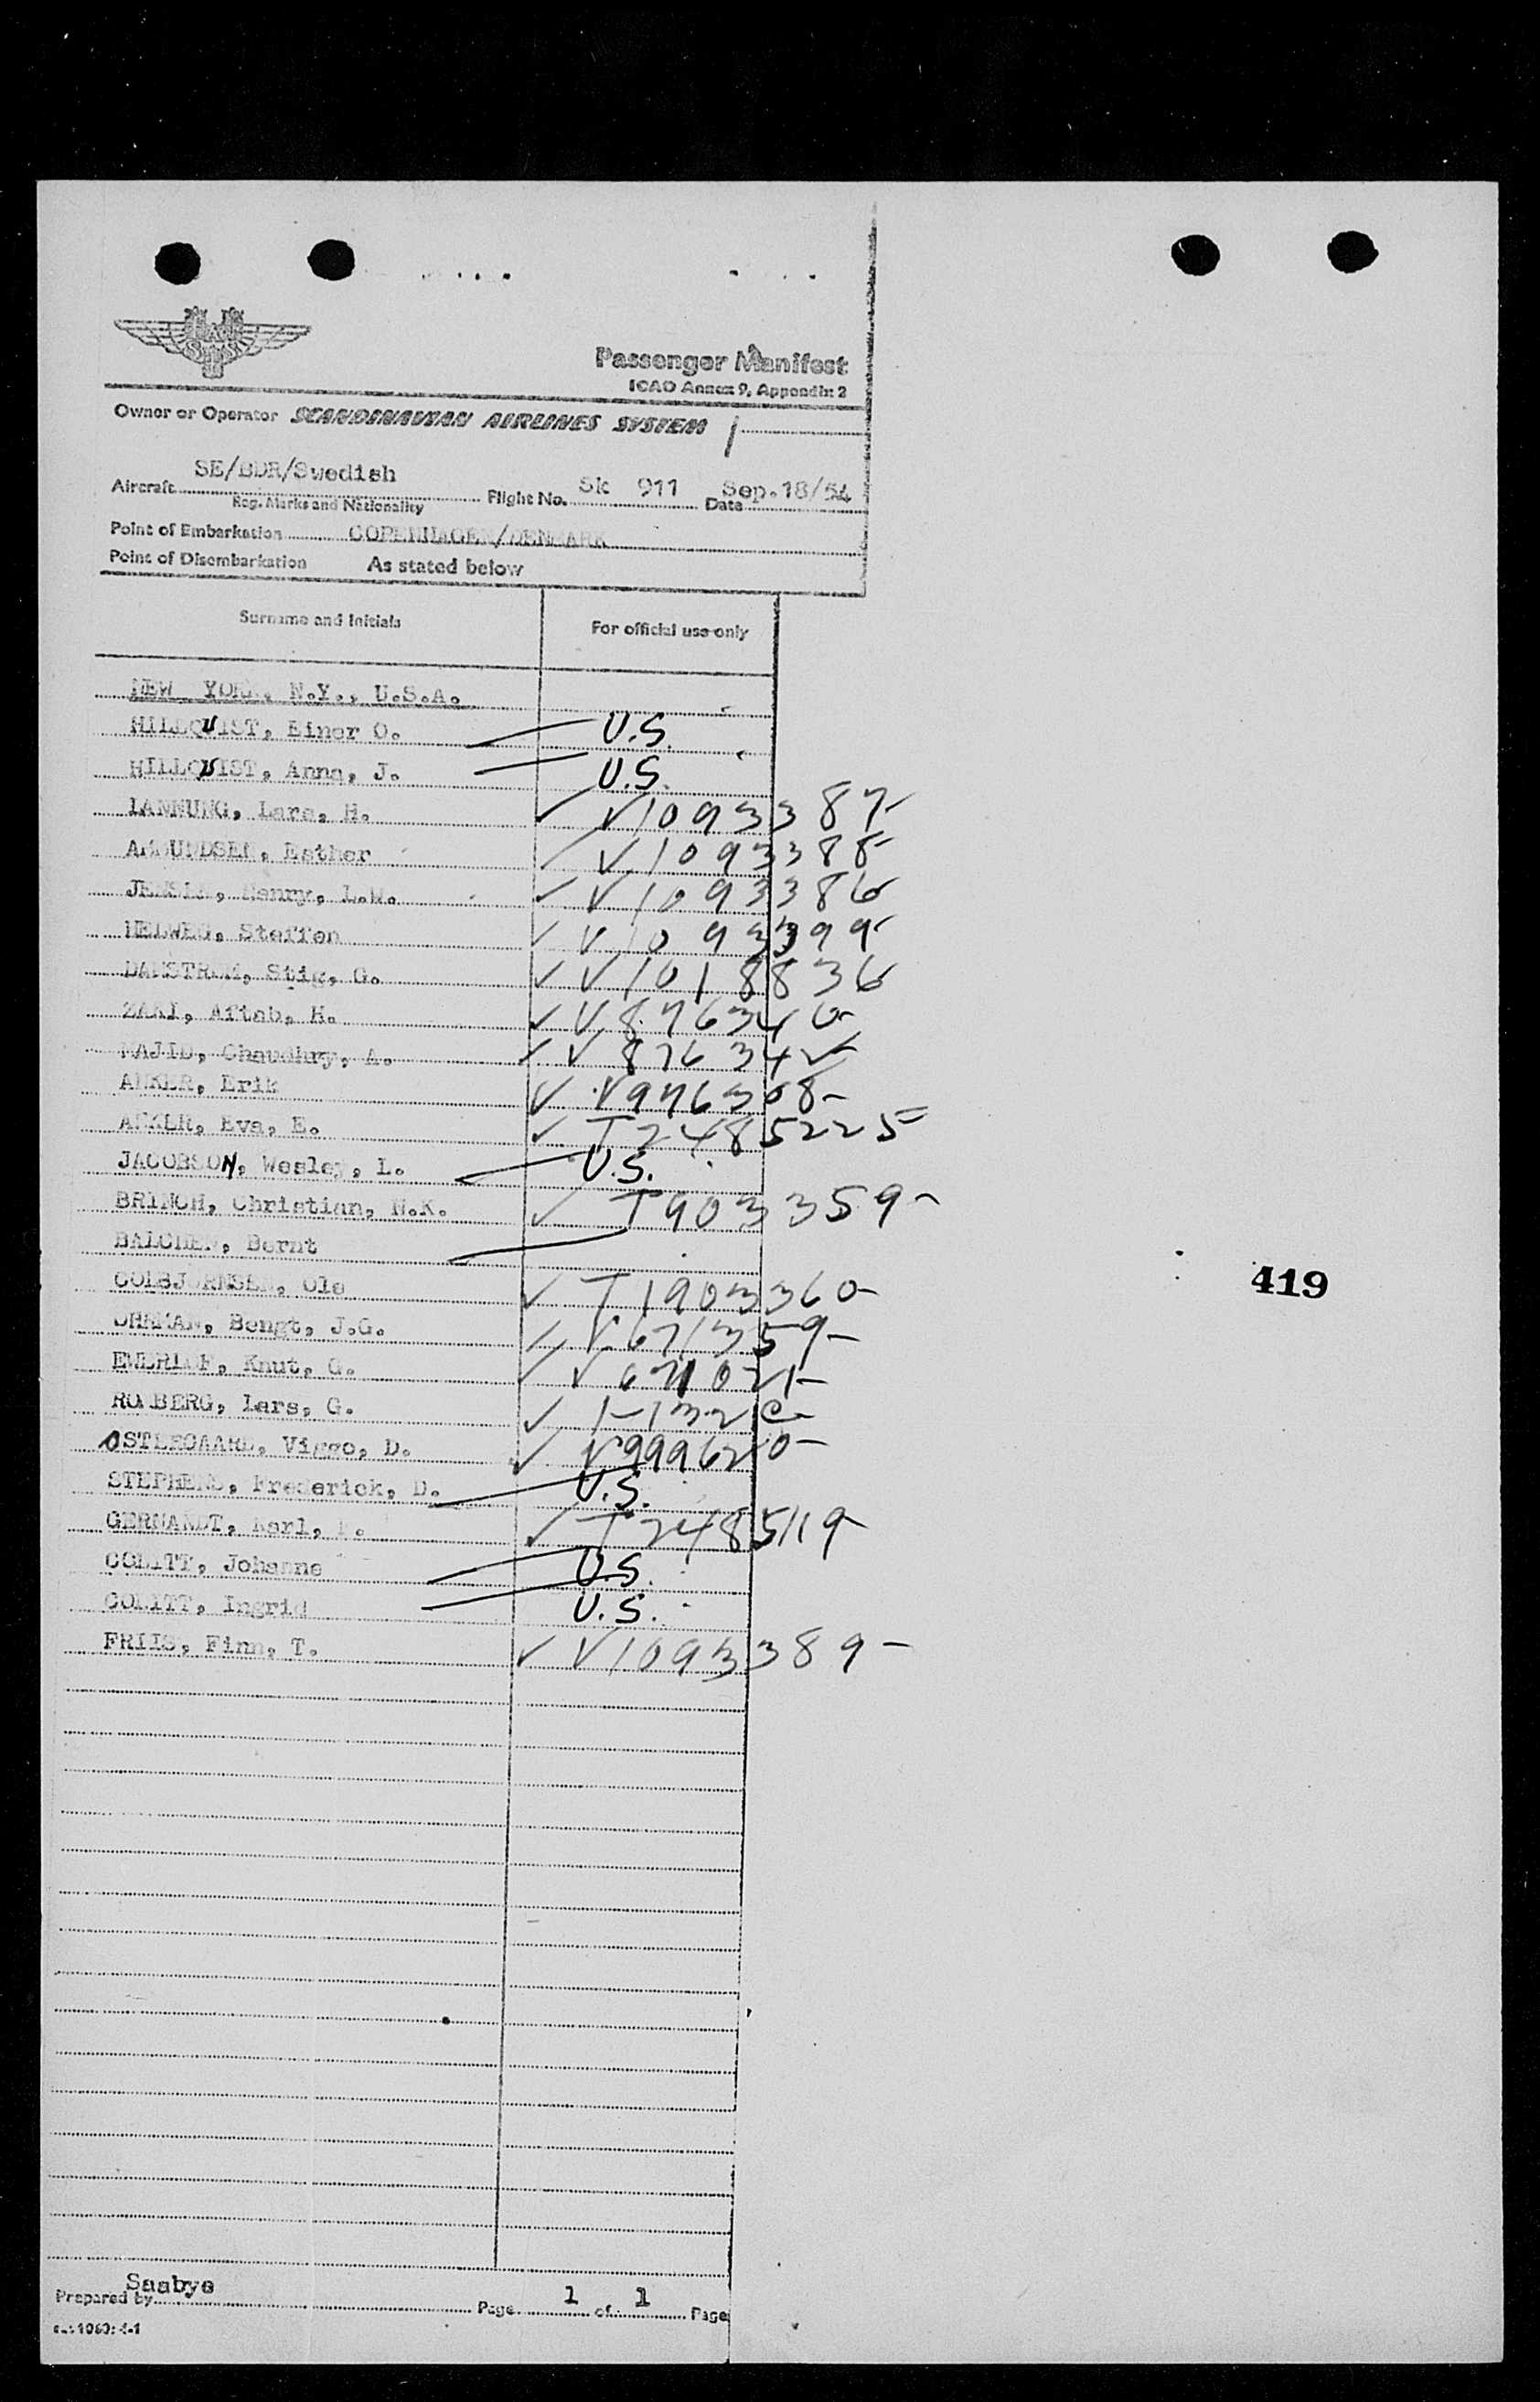 SAS
Passenger Manifest
ICAO Annex 9, Appendix 2
Owner or Operator SCANDINAVIAN AIRLINES SYSTEM
SE/BDR/Swedish
Aircraft Flight No. Sk 911 Date Sep.18/54
Reg. Marks and Nationality
Point of Embarkation COPENHAGEN/DENMARK
Point of Disembarkation As stated below
Surname and Initials For official use only
NEW YORK, N.Y., U.S.A.
HILLQUIST, Einer O. U.S.
HILLQUIST, Anna, J. U.S.
LANNUNG, Lars, H. ✓ V1093387-
AMOUNDSEN, Esther ✓ V1093388-
JENSEN, Henry, L.W. ✓ V1093386
HELWEG, Steffen ✓ V1093399-
DAMSTROM, Stig, G. ✓ V1018836
ZAKI, Aftab, H. ✓ V876340-
MAJID, Chaudhry, A. ✓ V876342-
ANKER, Erik ✓ V976308-
ANKER, Eva, E. ✓ T2485225-
JACOBSON, Wesley, L. U.S.
BRINCH, Christian, N.K. ✓ T903359-
BALCHEN, Bernt
COLBJORNSEN, Ole ✓ T1903360-
OHRMAN, Bengt, J.G. ✓ V671359-
Knut, G. ✓ V671021-
Lars, G. ✓
OSTERGAARD, Viggo, D. ✓ V999620-
STEPHENS, Frederick, D. U.S.
GERNANDT, Karl, ✓ T2485119-
Johanne U.S.
Ingrid U.S.
FRIIS, Finn, T. ✓ V1093389-
419
Saabye
Prepared by Page 1 of 1 Page